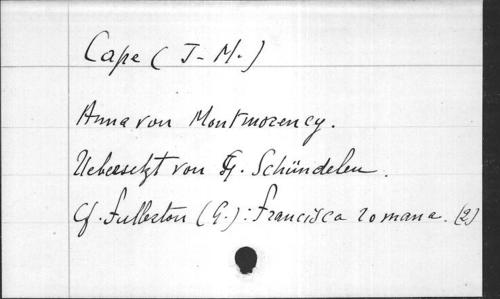 Cape ( J- M.)
Anna von Montmorency.
Uebersetzt von Fr. Schündelen.
Cf. Fullerton (G.): Francisca romana. (2)